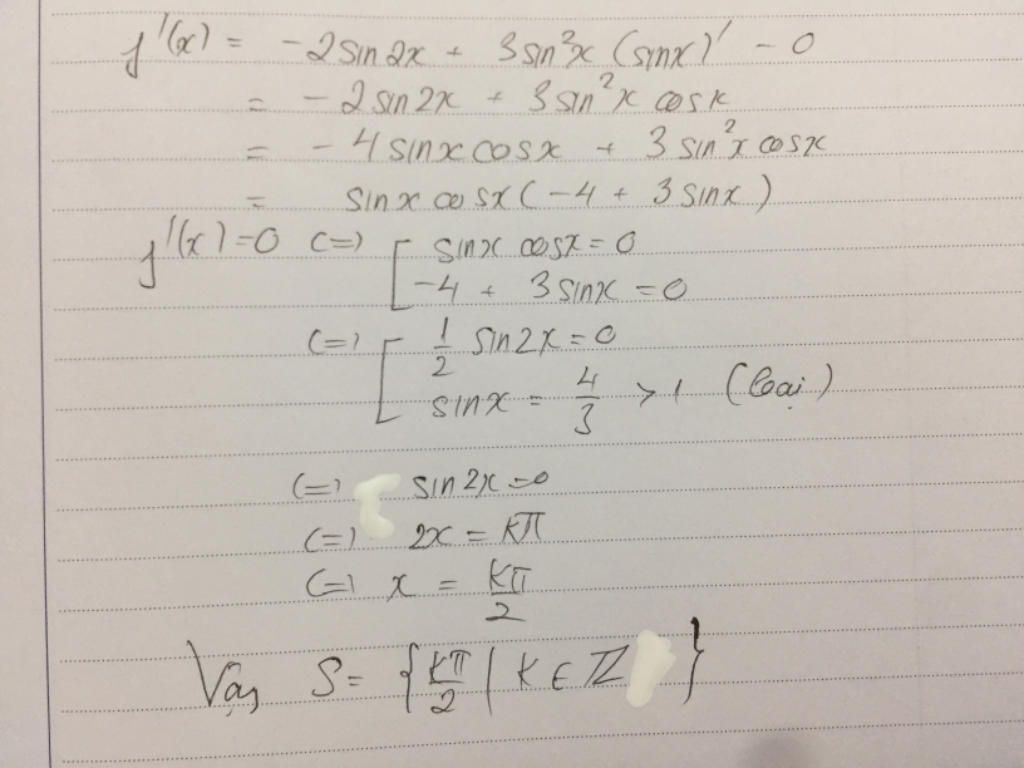 f'(x) = -2 sin 2x + 3 sin²x (sinx)' - 0
= -2 sin 2x + 3 sin²x cosx
= -4 sinx cosx + 3 sin²x cosx
= sinx cosx (-4 + 3 sinx)
f'(x) = 0 (=) [ sinx cosx = 0
-4 + 3 sinx = 0
(=) [ 1/2 sin 2x = 0
sinx = 4/3 > 1 (loại)
(=) sin 2x = 0
(=) 2x = kπ
(=) x = kπ/2
Vậy S = {kπ/2 | k ∈ ℤ}